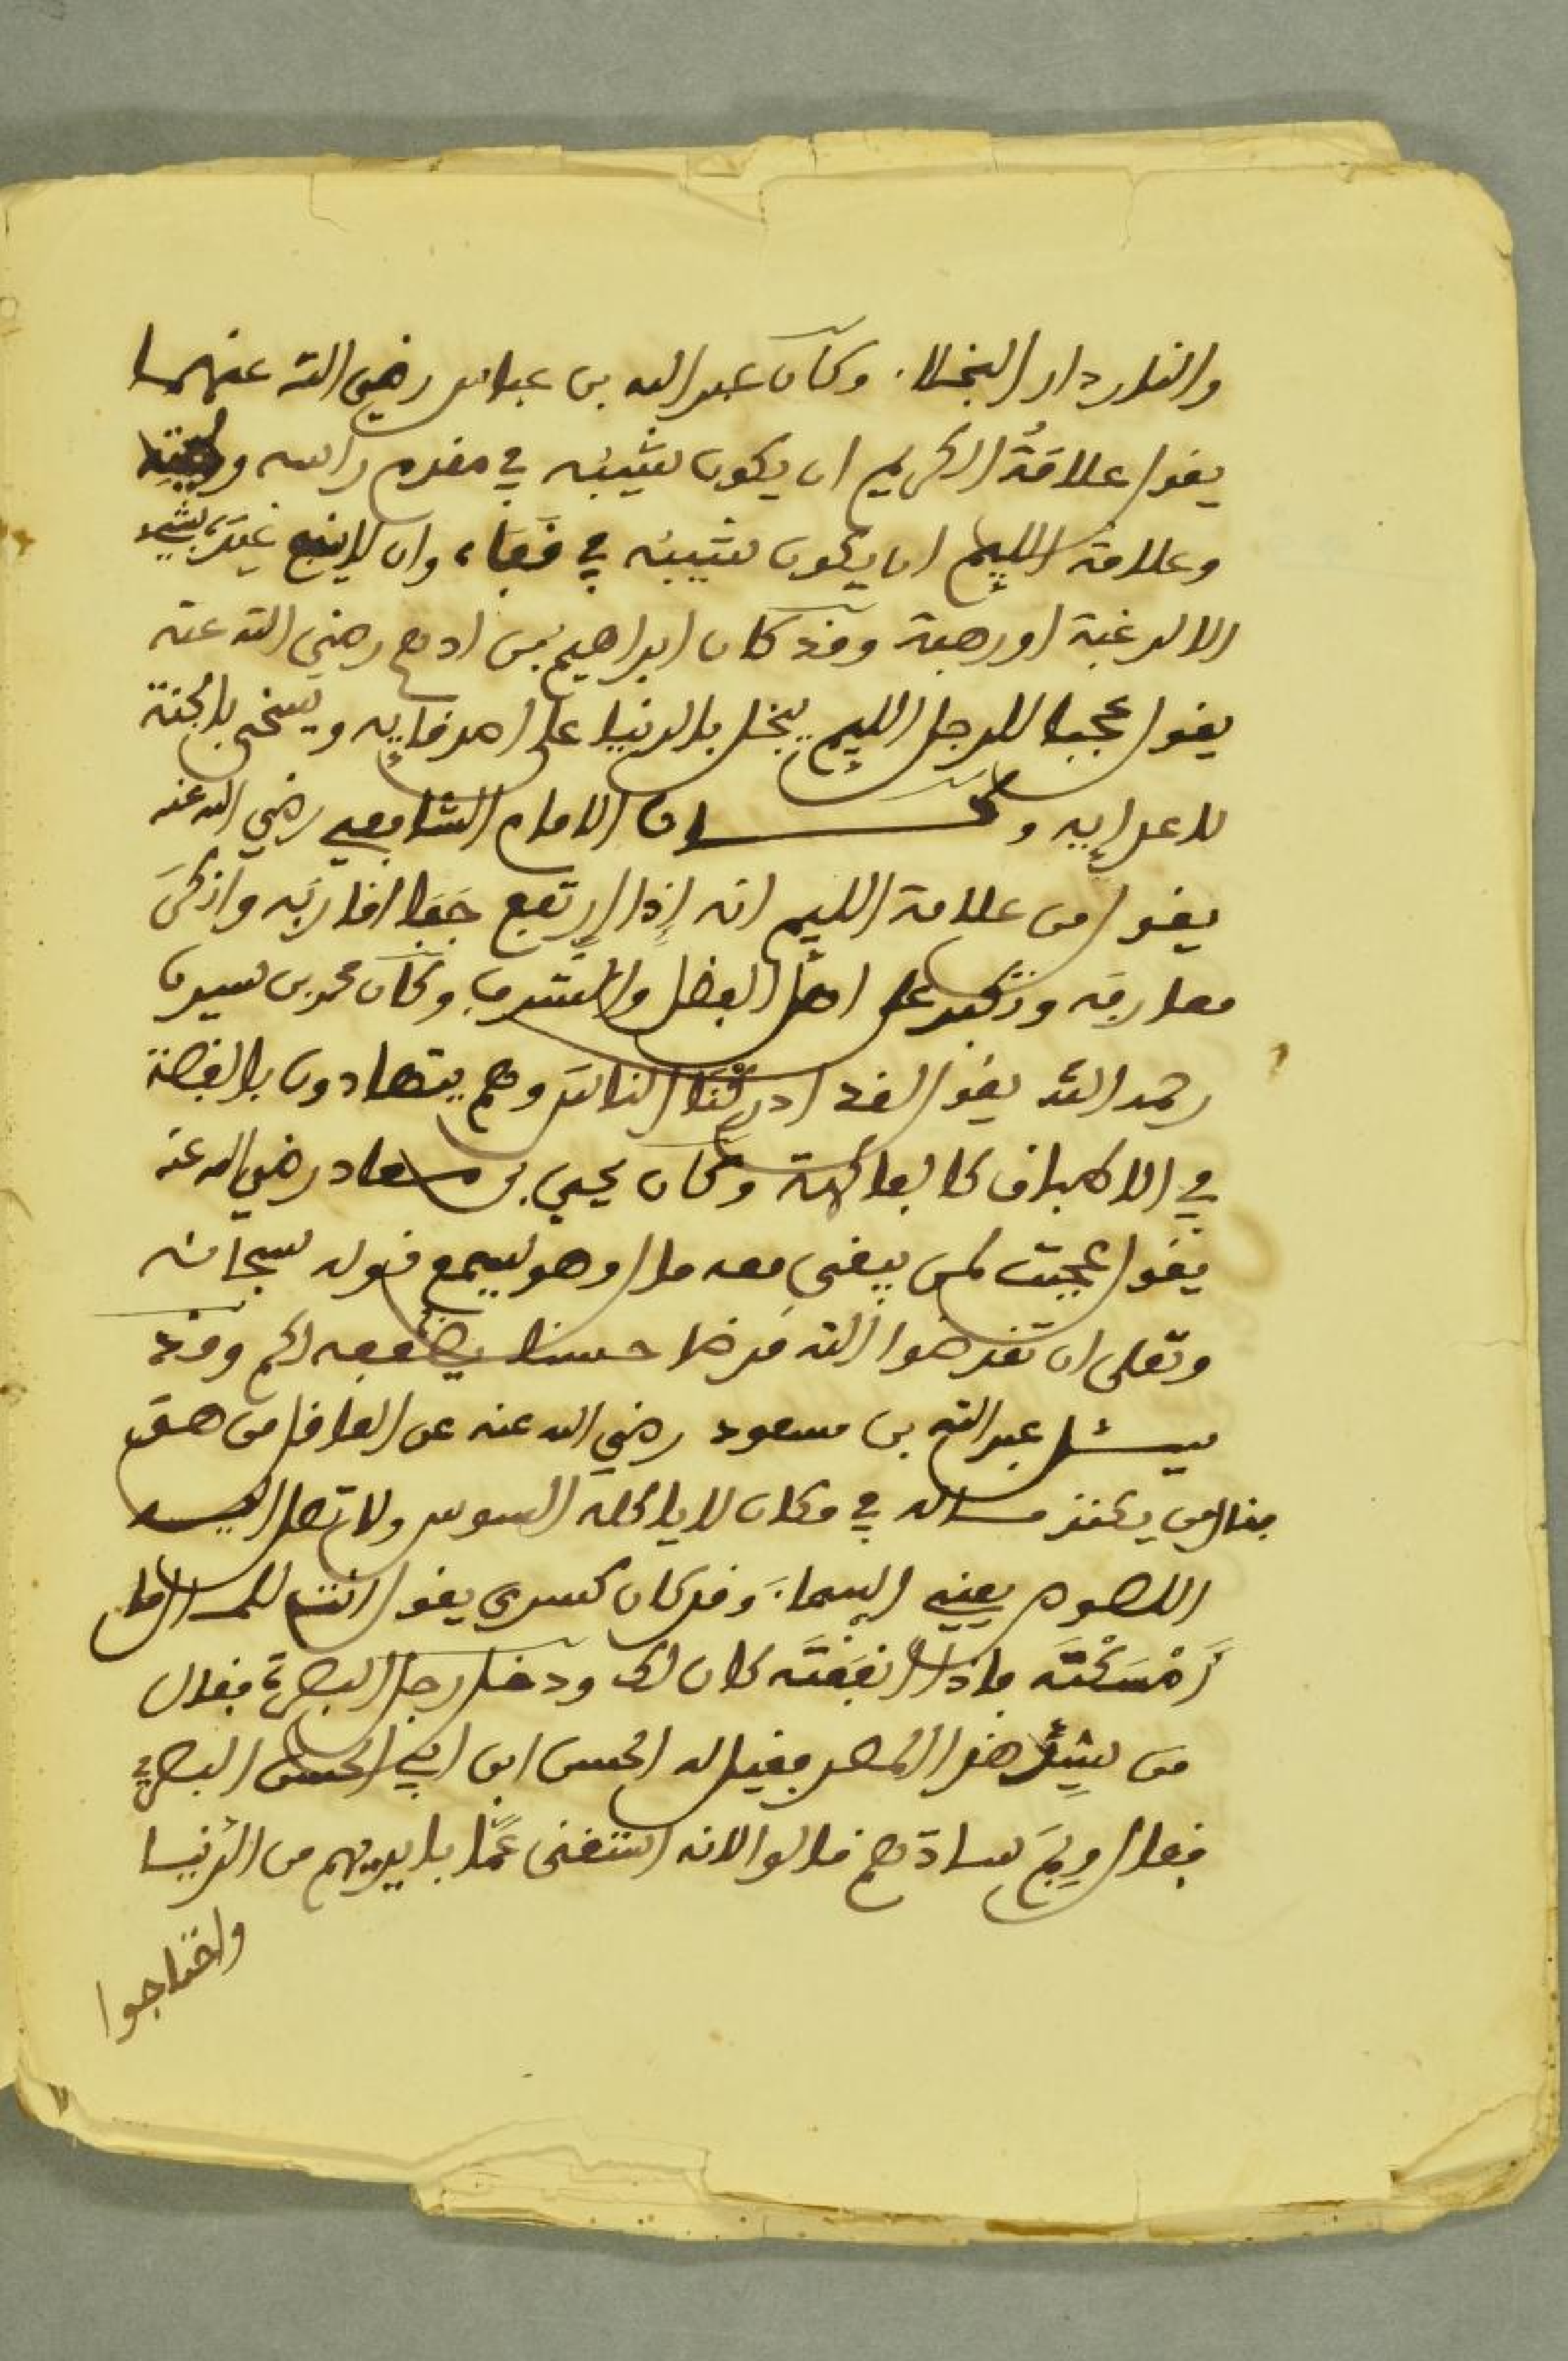 والنار دار البخلا. وكان عبد الله بن عباس رضي الله عنهما
يقول علامةُ الكريم ان يكون شيبُه في مقدم راسه ولحيته
وعلامة الليم ان يكون شيبه في قفاه وان لا ينفع غيره بشيء
الا لرغبة او رهبة وقد كان ابراهيم بن ادهم رضي الله عنه
يقول عجبا للرجل الليم يبخل بالدنيا على اصدقايه ويسخى بالجنة
لاعدايه وكان الامام الشافعي رضي الله عنه
يقول من علامة الليم انه إذا ارتفع جفا اقاربَه وانكرَ
معارفه وتكبر على اهل الفضل والشرف وكان محمد بن سيرين
رحمه الله يقول لقد ادركْنَا الناسَ وهم يتهادون بالفضة
في الاطباق كالفاكهة وكان يحيي بن معاد رضي الله عنه
يقول عجبت لمن يبقى معه مال وهو يسمع قوله سبحانه
وتعلى ان تقرضوا الله قرضا حسنا يضعفه لكم وقد
سئل عبد الله بن مسعود رضي الله عنه عن العاقل من هو
فقال من يكنز ماله في مكان لا ياكله السوس ولا تصل اليه
اللصوص يعني السماءَ وقد كان كسرى يقول انت للمال اذا
أَمْسَكْتَه فاذا انفَقْتَه كان لك ودخل رجل البصرة فقال
من سيِّدُ هذا المصر فقيل له الحسن ابن ابي الحسن البصري
فقال وبِمَ سادَهم قالوا لانه استغنى عمَّا بايديهم من الدنيا
واحتاجوا